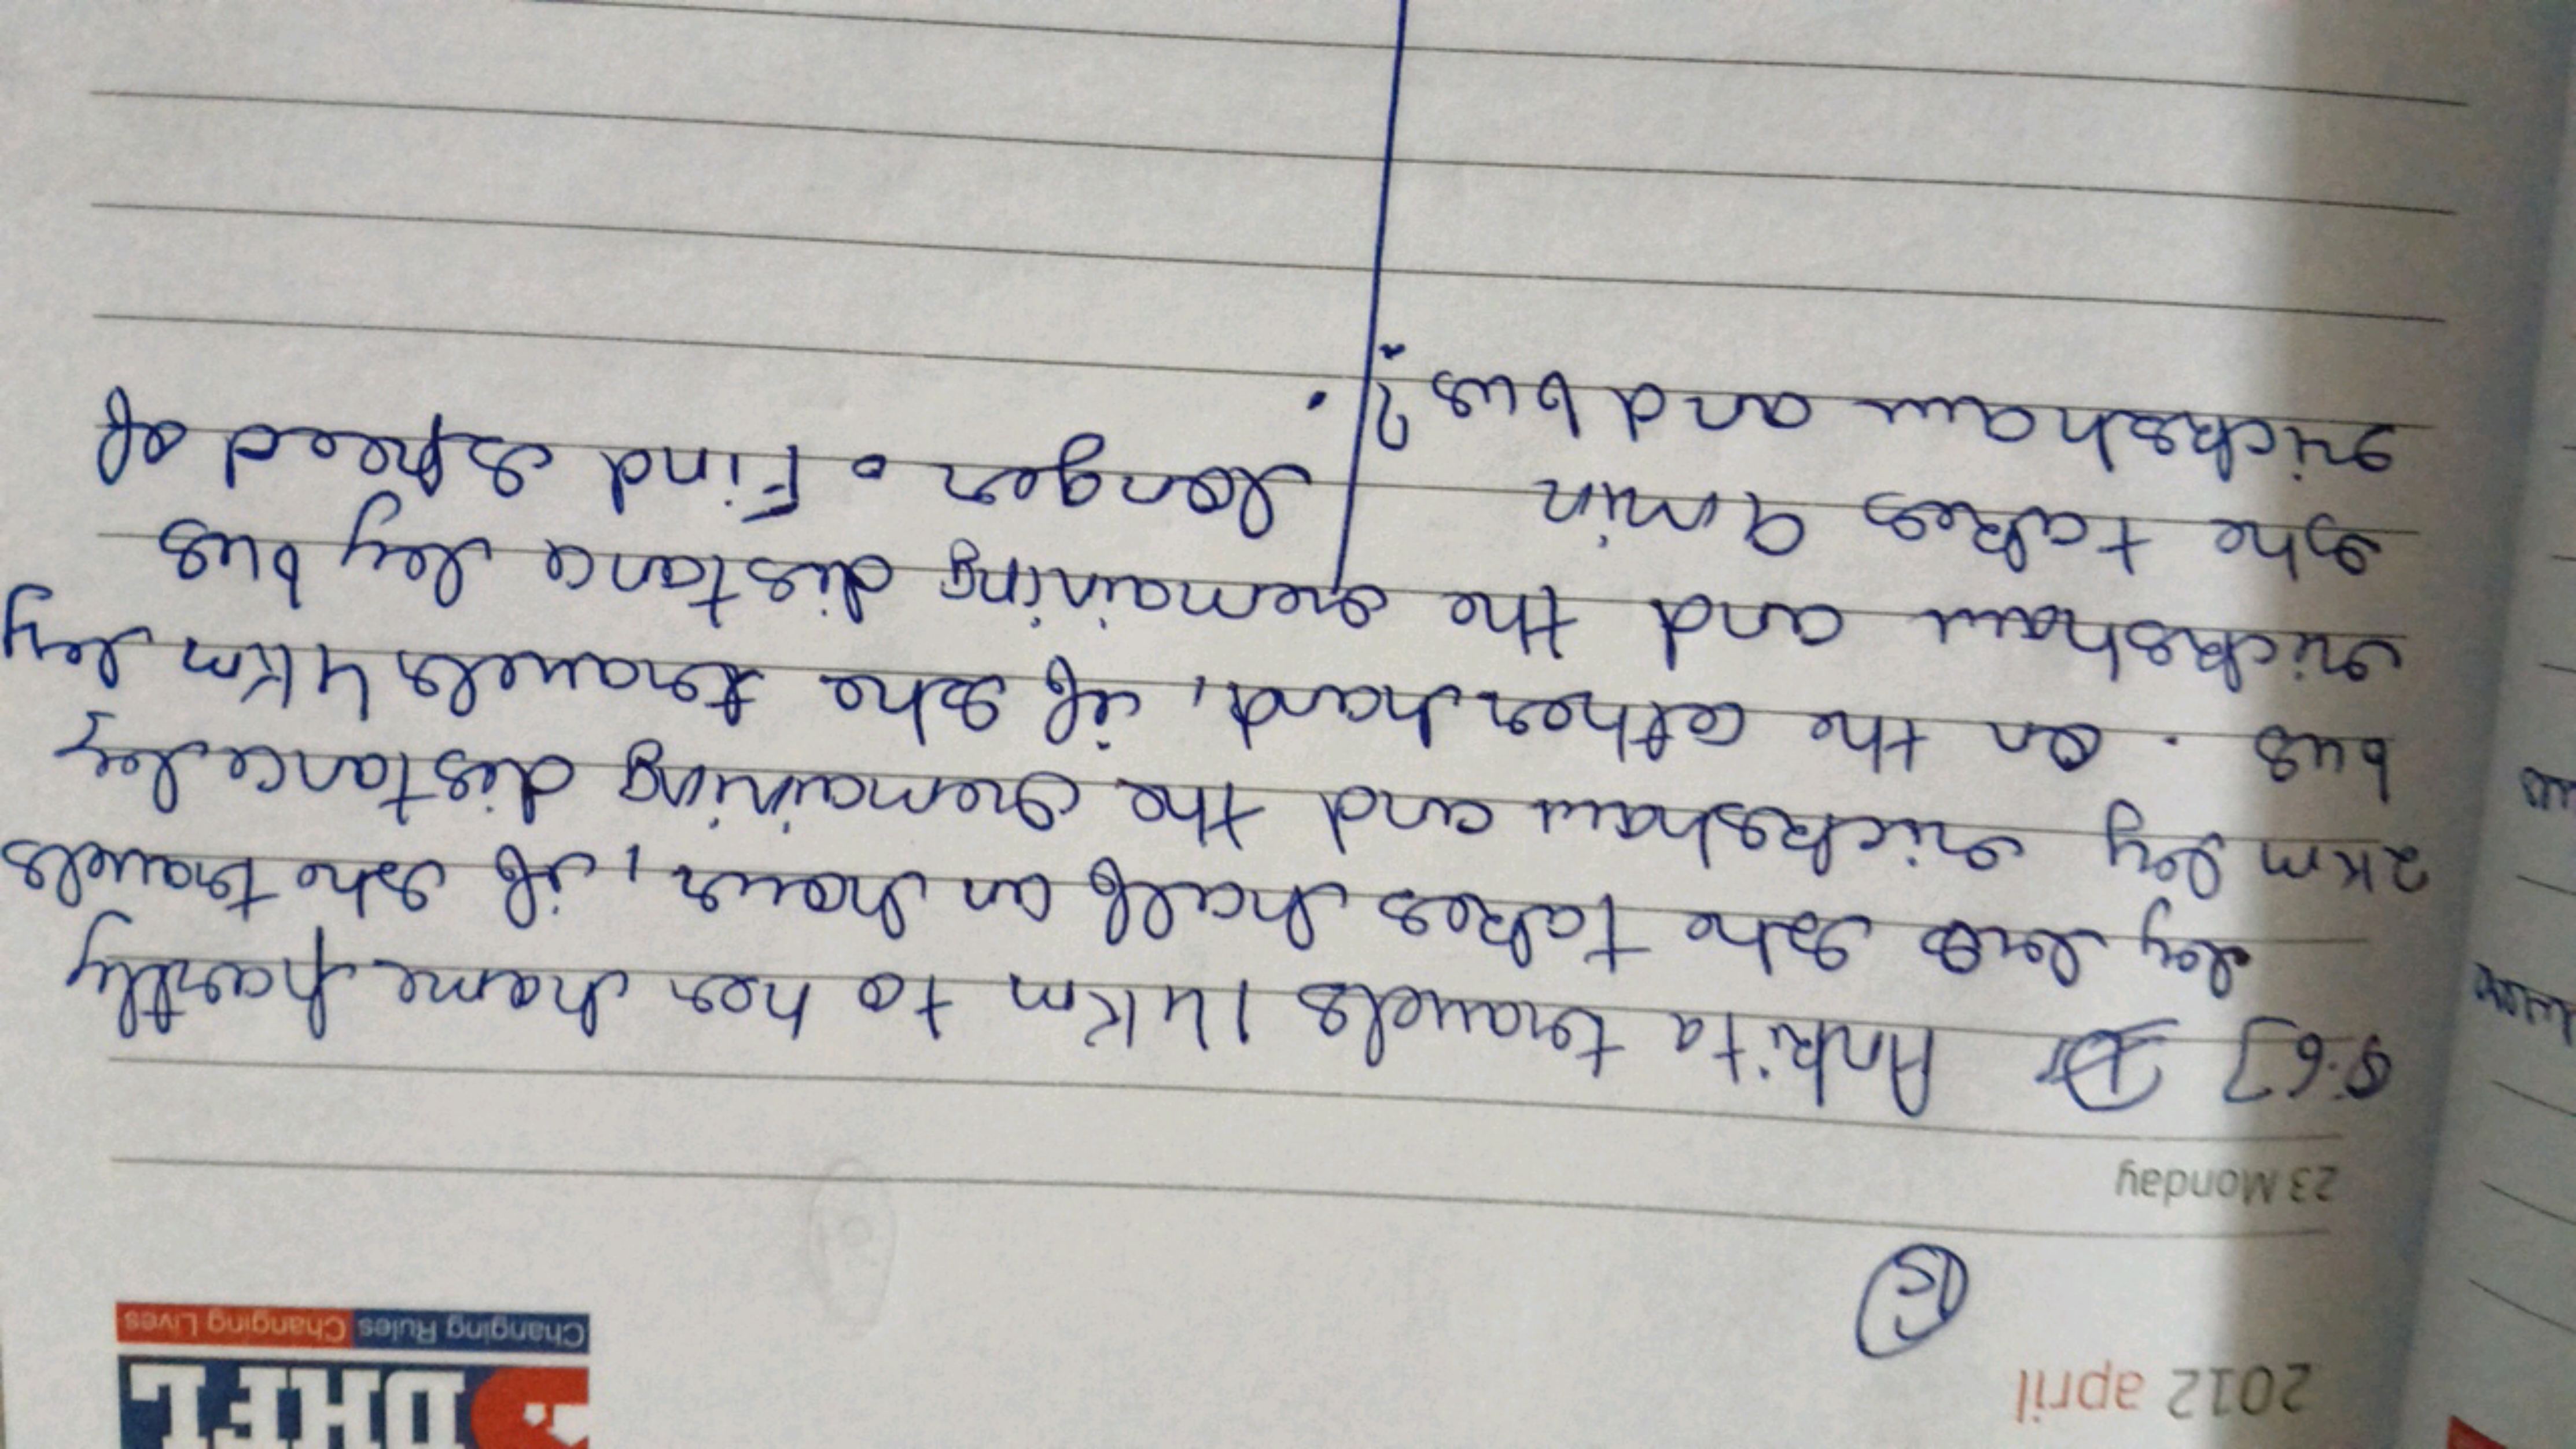 2012 april
DHFL
Changing Rules Changing Lives
15
23 Monday
Q.6] Ankita travels 14Km to her home partly
by bus she takes half an hour, if she travels
2Km by rickshaw and the remaining distance by
bus. On the other hand, if she travels 4Km by
rickshaw and the remaining distance by bus
she takes 9 min longer. Find speed of
rickshaw and bus?